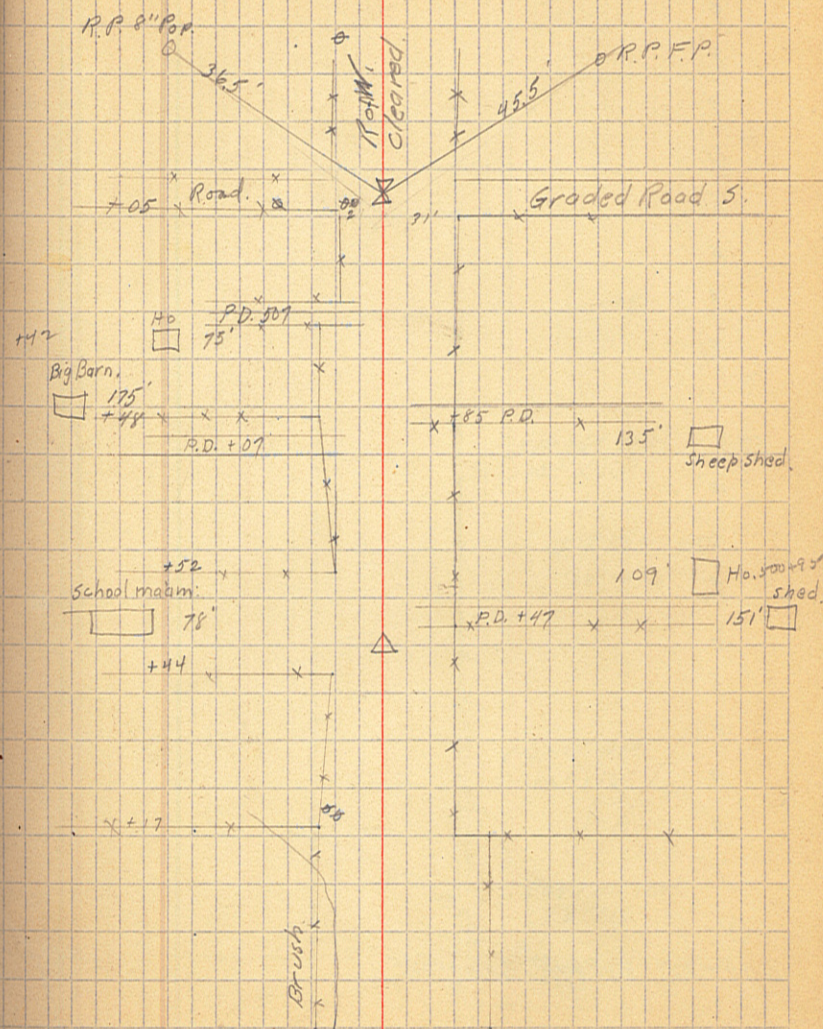 R.P. 8" Pop.
R.P. F.P.
36.5'
45.5'
cleared.
Road.
+05
31'
Graded Road S.
P.D. 507
Ho
75'
+42
Big Barn.
175'
+48
P.D. +07
+85 P.D.
135'
Sheep shed.
+52
School maam.
78'
109'
Ho. 500+95
shed.
P.D. +47
151'
+44
+17
Brush